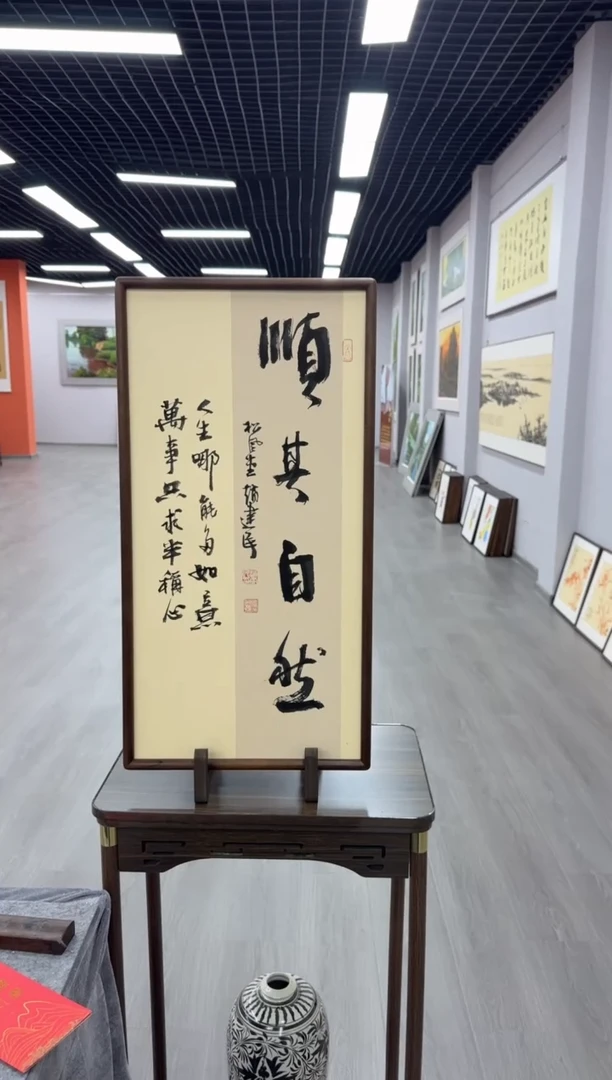 順其自然
松風堂 趙建民
人生哪能多如意
萬事只求半稱心